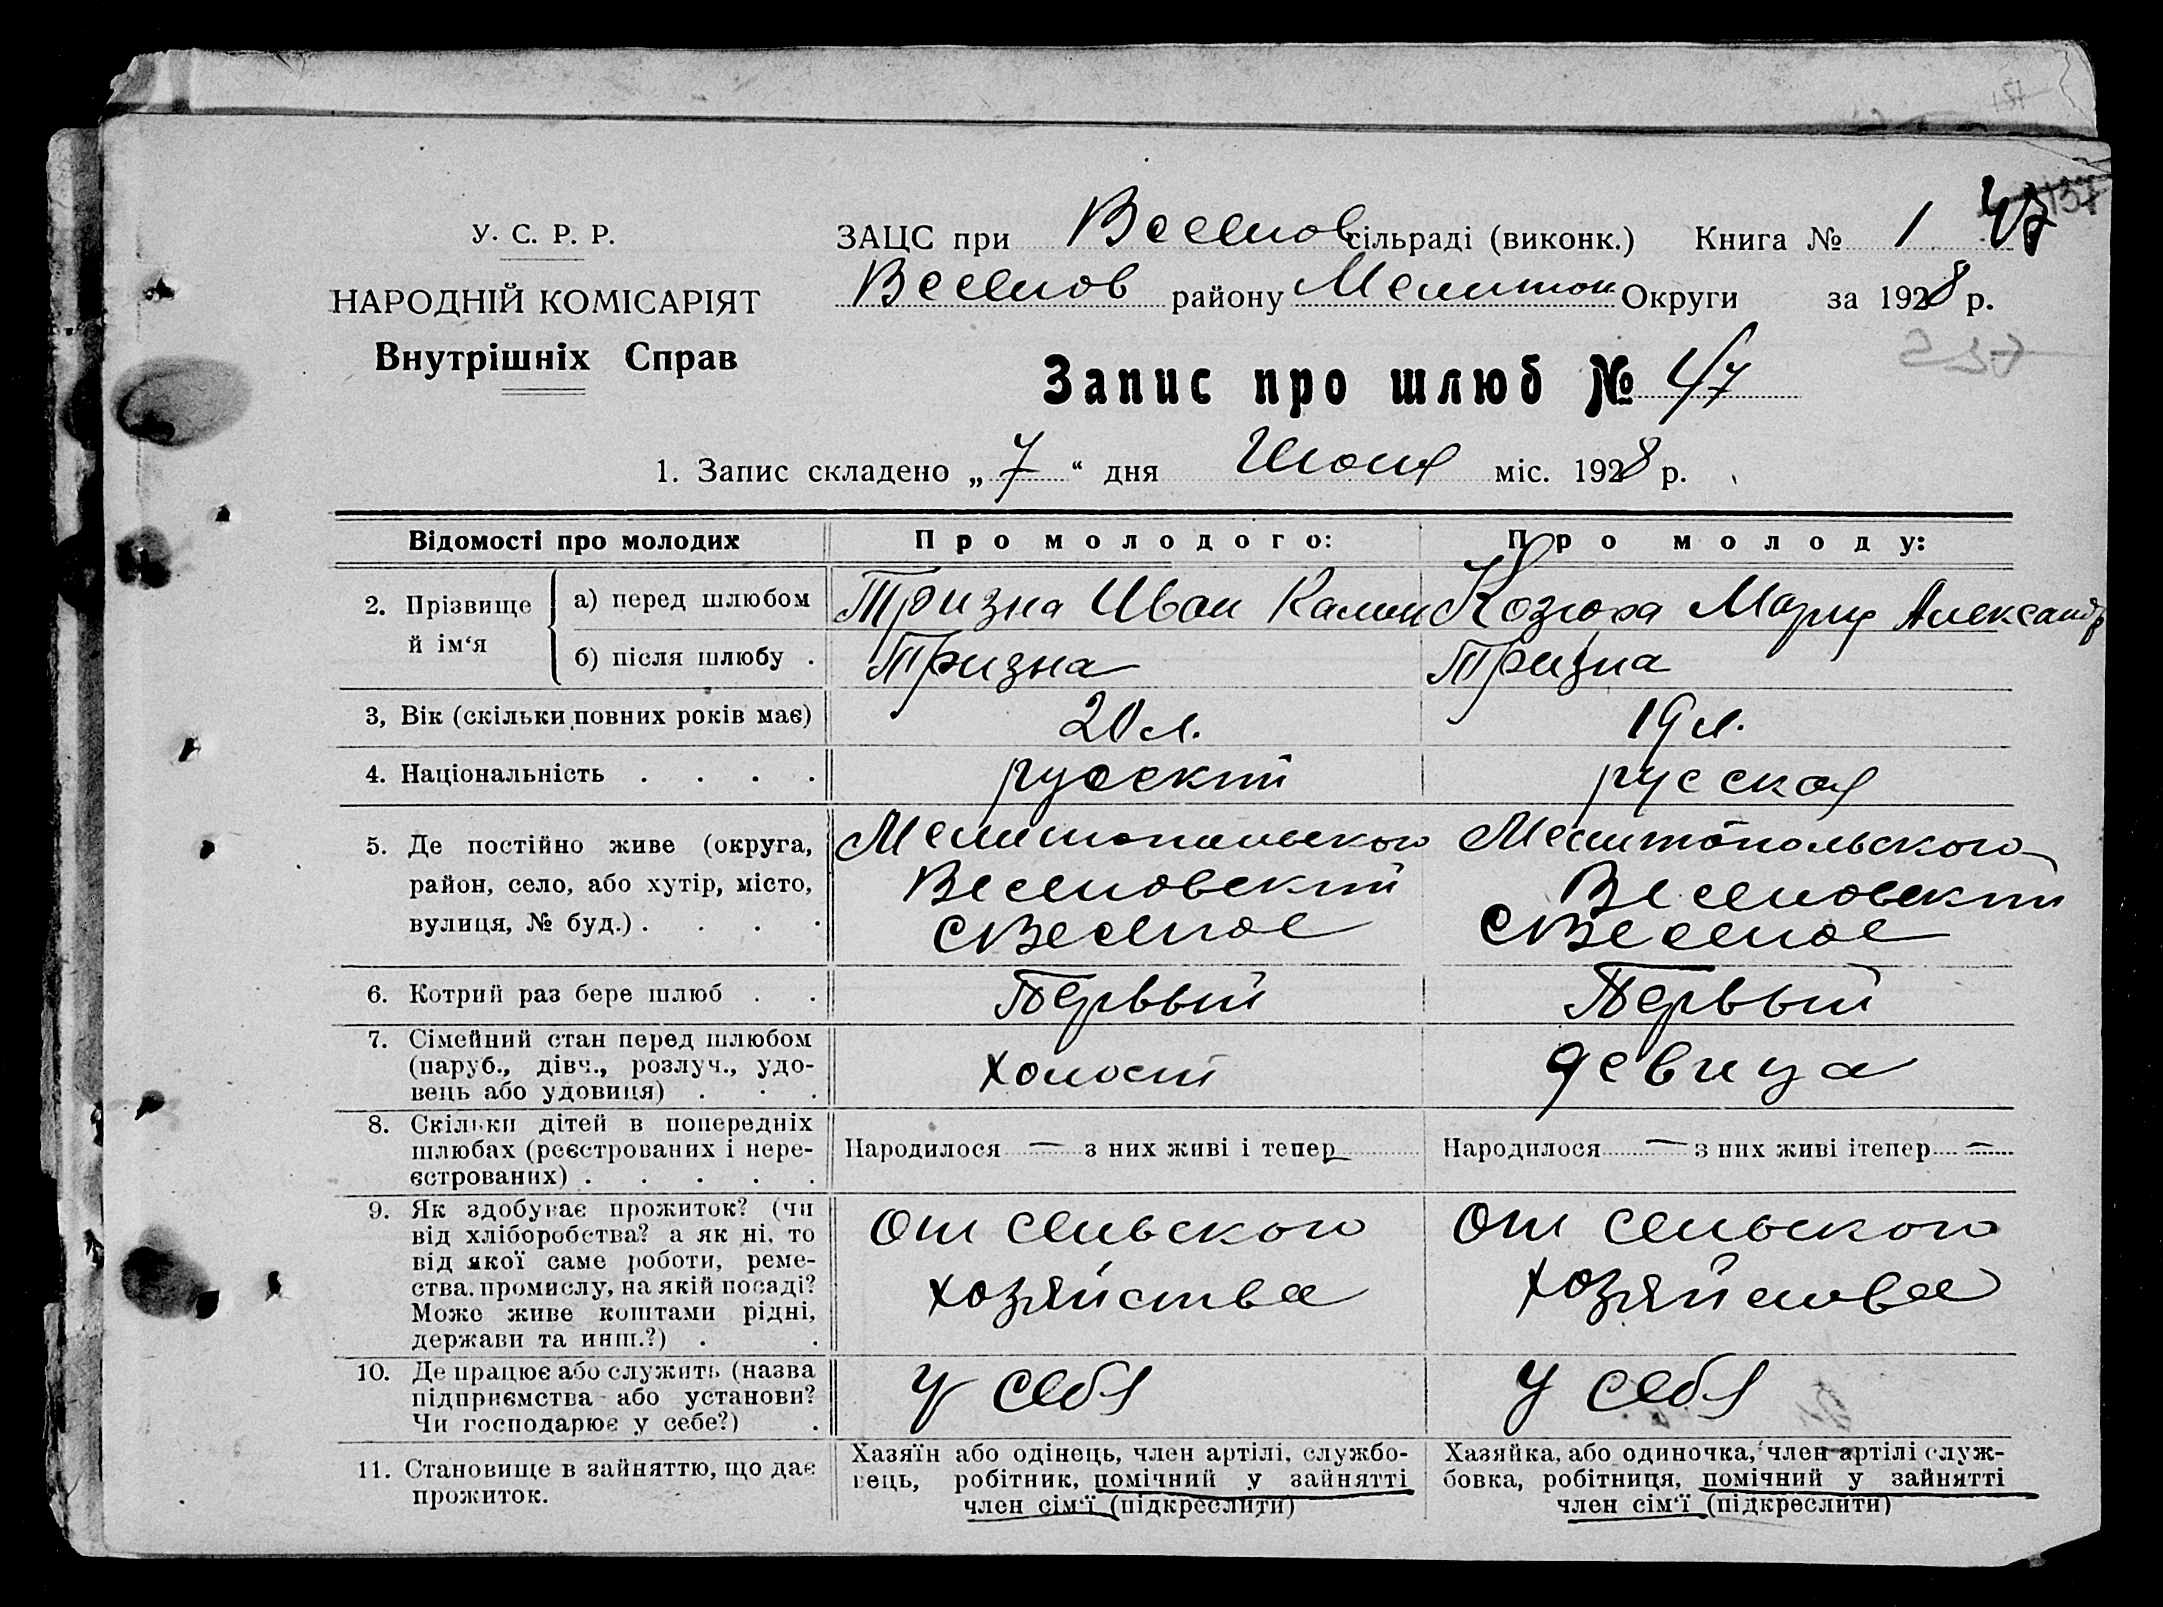 У. С. Р. Р.
НАРОДНІЙ КОМІСАРІЯТ
Внутрішніх Справ
ЗАЦС при Веселов сільраді (виконк.) Книга № 1 47
Веселов району Мелитоп Округи за 1928 р.
237
Запис про шлюб № 47
1. Запис складено „ 7 “ дня Июня міс. 1928 р.
Відомості про молодих
Про молодого:
Про молоду:
2. Прізвище й ім‘я
а) перед шлюбом
Тризна Иван Калин
Козюра Мария Александр
б) після шлюбу .
Тризна
Тризна
3, Вік (скільки повних років має)
20 л.
19 л.
4. Національність . . . .
русский
русская
5. Де постійно живе (округа,
район, село, або хутір, місто,
вулиця, № буд.) . . . .
Мелитопольского
Веселовский
с Веселое
Мелитопольского
Веселовский
с Веселое
6. Котрий раз бере шлюб . .
Первый
Первый
7. Сімейний стан перед шлюбом
(паруб., дівч., розлуч., удо-
вець або удовиця) . . .
холост
девица
8. Скільки дітей в попередніх
шлюбах (реєстрованих і нере-
єстрованих) . . . . .
Народилося — з них живі і тепер —
Народилося — з них живі ітепер —
9. Як здобуває прожиток? (чи
від хліборобства? а як ні, то
від якої саме роботи, реме-
ства, промислу, на якій посаді?
Може живе коштами рідні,
держави та инш.?) . .
От сельского
хозяйства
От сельского
хозяйства
10. Де працює або служить (назва
підприємства або установи?
Чи господарює у себе?) .
У себя
У себя
11. Становище в зайняттю, що дає
прожиток.
Хазяїн або одінець, член артілі, службо-
вець, робітник, помічний у зайнятті
член сім‘ї (підкреслити)
Хазяйка, або одиночка, член артілі служ-
бовка, робітниця, помічний у зайнятті
член сім‘ї (підкреслити)